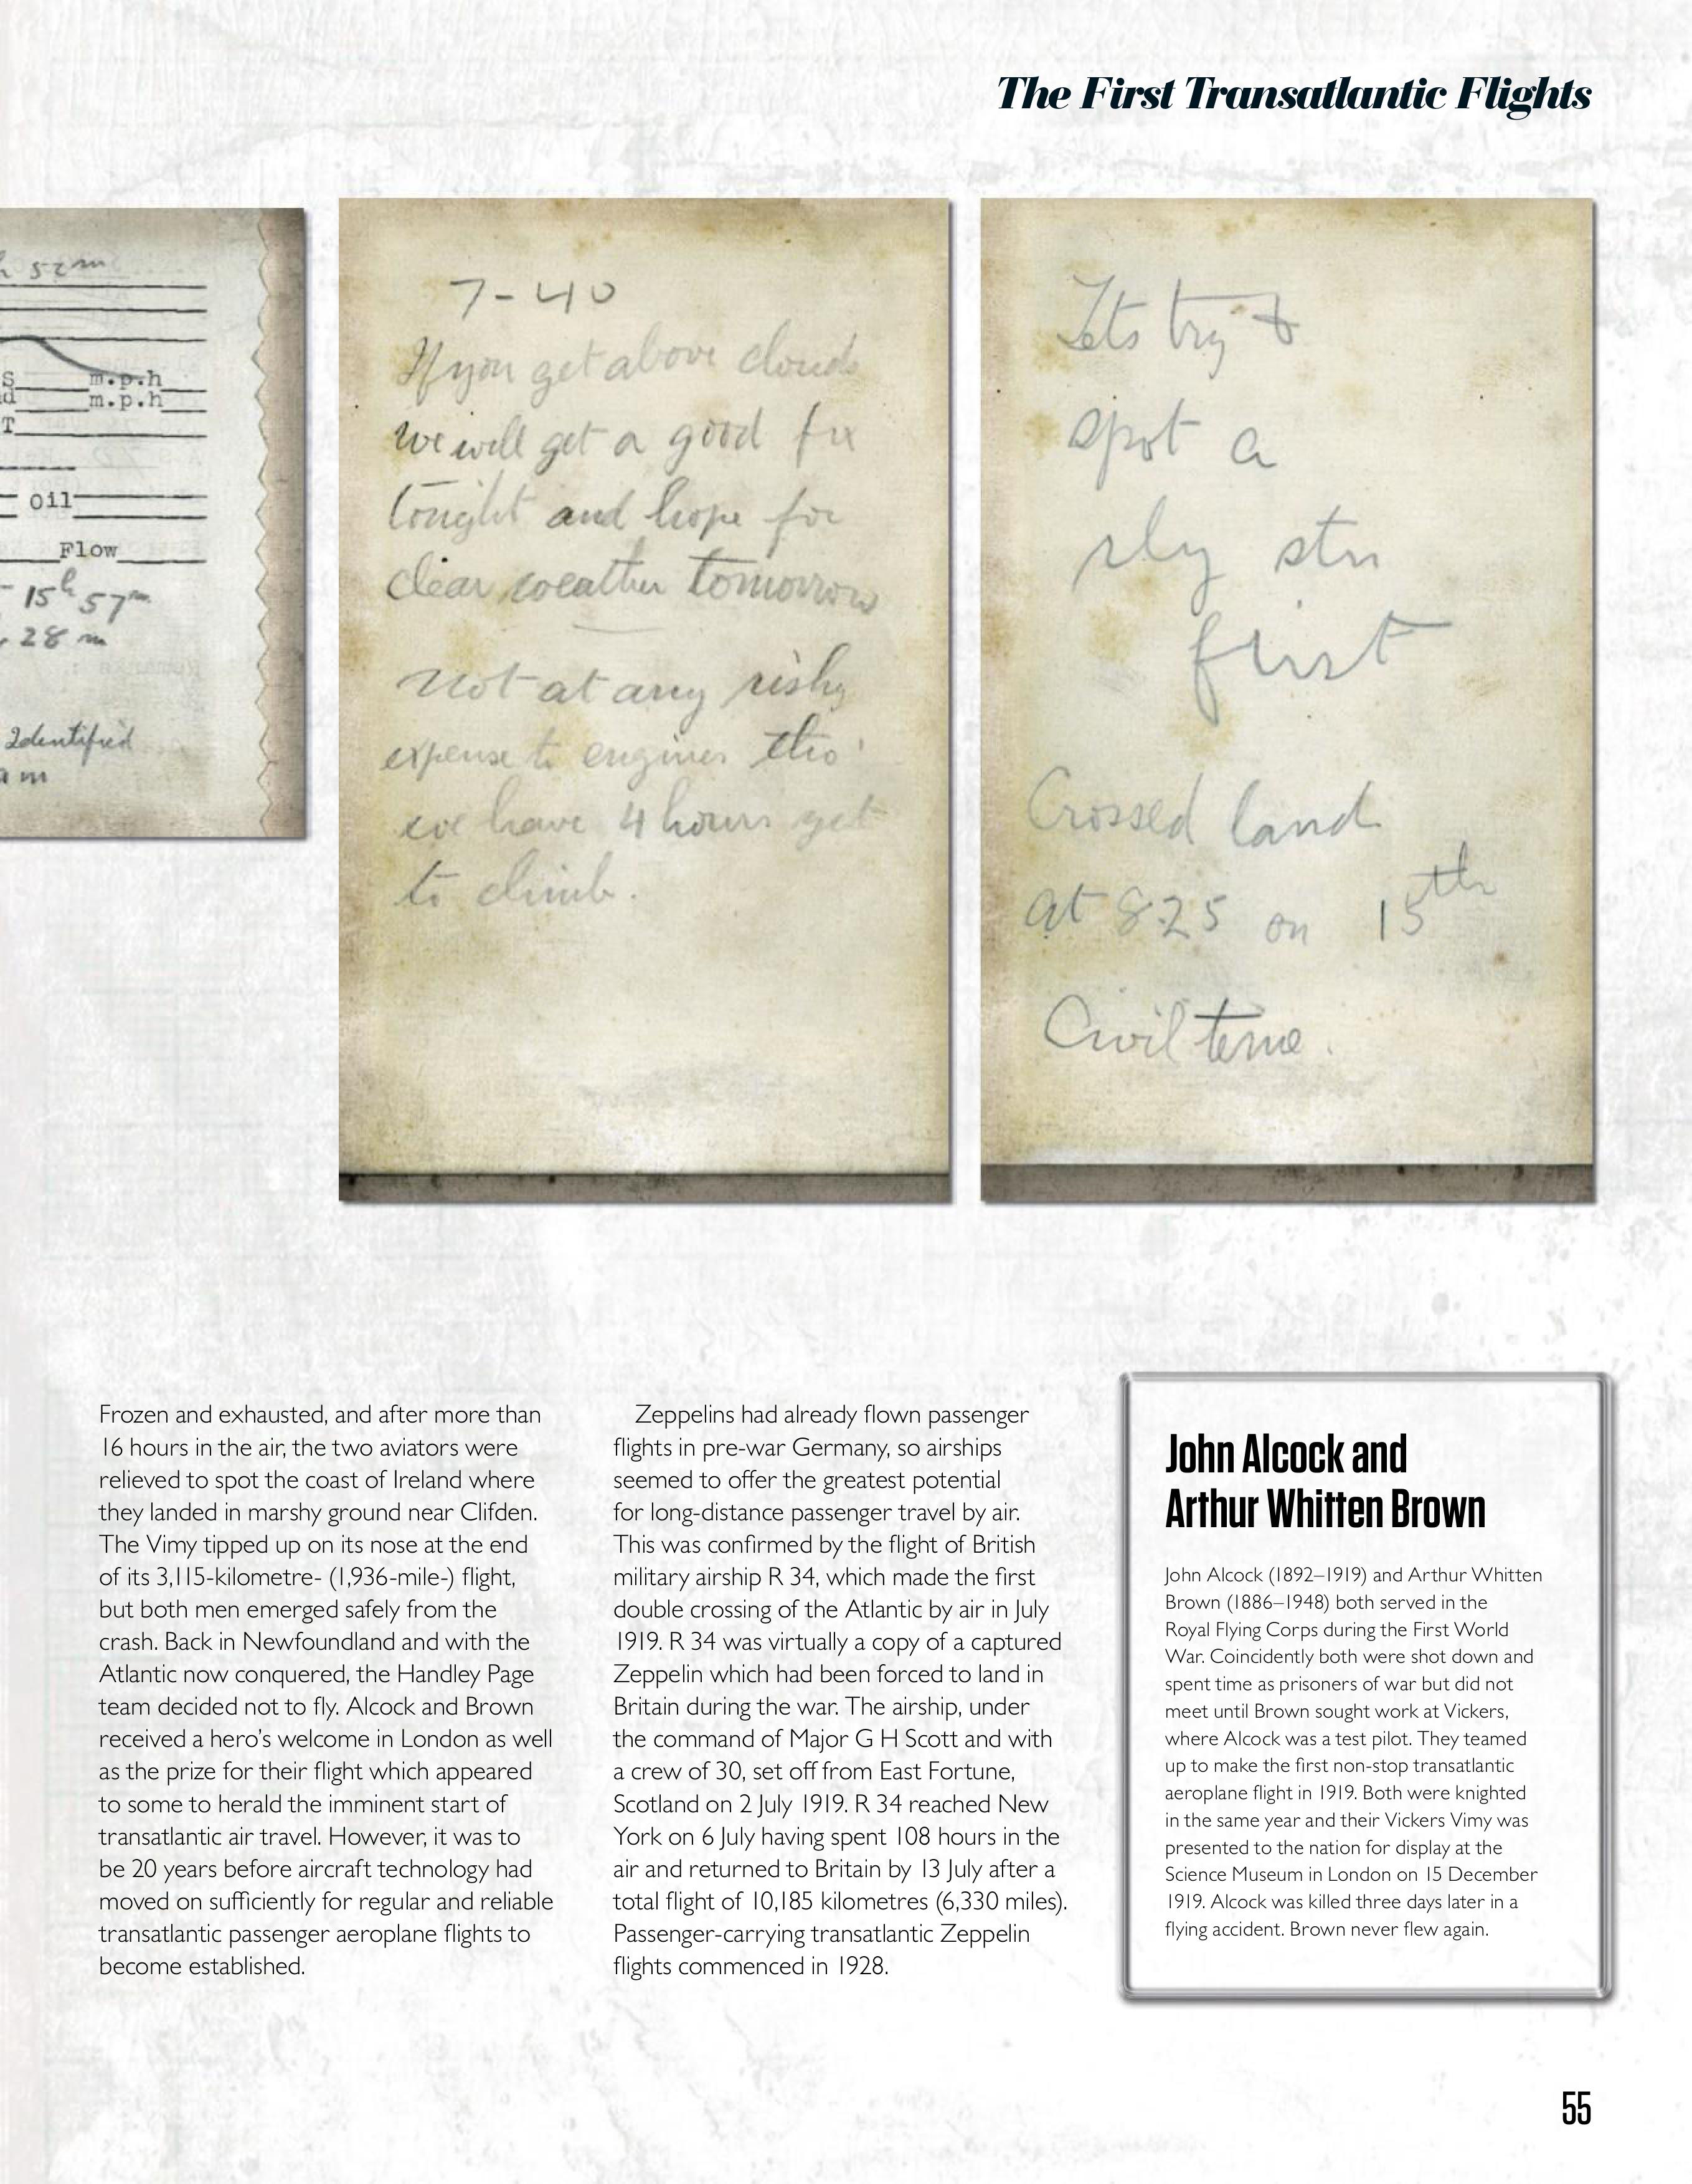 The First Transatlantic Flights
52m
m.p.h
m.p.h
T
Oil
Flow
15h 57m
28 m
Identified
7-40
If you get above clouds
we will get a good fix
tonight and hope for
clear weather tomorrow
Not at any risky
expense to engines tho'
we have 4 hours yet
to climb.
Lets try &
spot a
rly stn
first
Crossed land
at 825 on 15th
Civil time.
Frozen and exhausted, and after more than
16 hours in the air, the two aviators were
relieved to spot the coast of Ireland where
they landed in marshy ground near Clifden.
The Vimy tipped up on its nose at the end
of its 3,115-kilometre- (1,936-mile-) flight,
but both men emerged safely from the
crash. Back in Newfoundland and with the
Atlantic now conquered, the Handley Page
team decided not to fly. Alcock and Brown
received a hero's welcome in London as well
as the prize for their flight which appeared
to some to herald the imminent start of
transatlantic air travel. However, it was to
be 20 years before aircraft technology had
moved on sufficiently for regular and reliable
transatlantic passenger aeroplane flights to
become established.
Zeppelins had already flown passenger
flights in pre-war Germany, so airships
seemed to offer the greatest potential
for long-distance passenger travel by air.
This was confirmed by the flight of British
military airship R 34, which made the first
double crossing of the Atlantic by air in July
1919. R 34 was virtually a copy of a captured
Zeppelin which had been forced to land in
Britain during the war. The airship, under
the command of Major G H Scott and with
a crew of 30, set off from East Fortune,
Scotland on 2 July 1919. R 34 reached New
York on 6 July having spent 108 hours in the
air and returned to Britain by 13 July after a
total flight of 10,185 kilometres (6,330 miles).
Passenger-carrying transatlantic Zeppelin
flights commenced in 1928.
John Alcock and
Arthur Whitten Brown
John Alcock (1892–1919) and Arthur Whitten
Brown (1886–1948) both served in the
Royal Flying Corps during the First World
War. Coincidently both were shot down and
spent time as prisoners of war but did not
meet until Brown sought work at Vickers,
where Alcock was a test pilot. They teamed
up to make the first non-stop transatlantic
aeroplane flight in 1919. Both were knighted
in the same year and their Vickers Vimy was
presented to the nation for display at the
Science Museum in London on 15 December
1919. Alcock was killed three days later in a
flying accident. Brown never flew again.
55